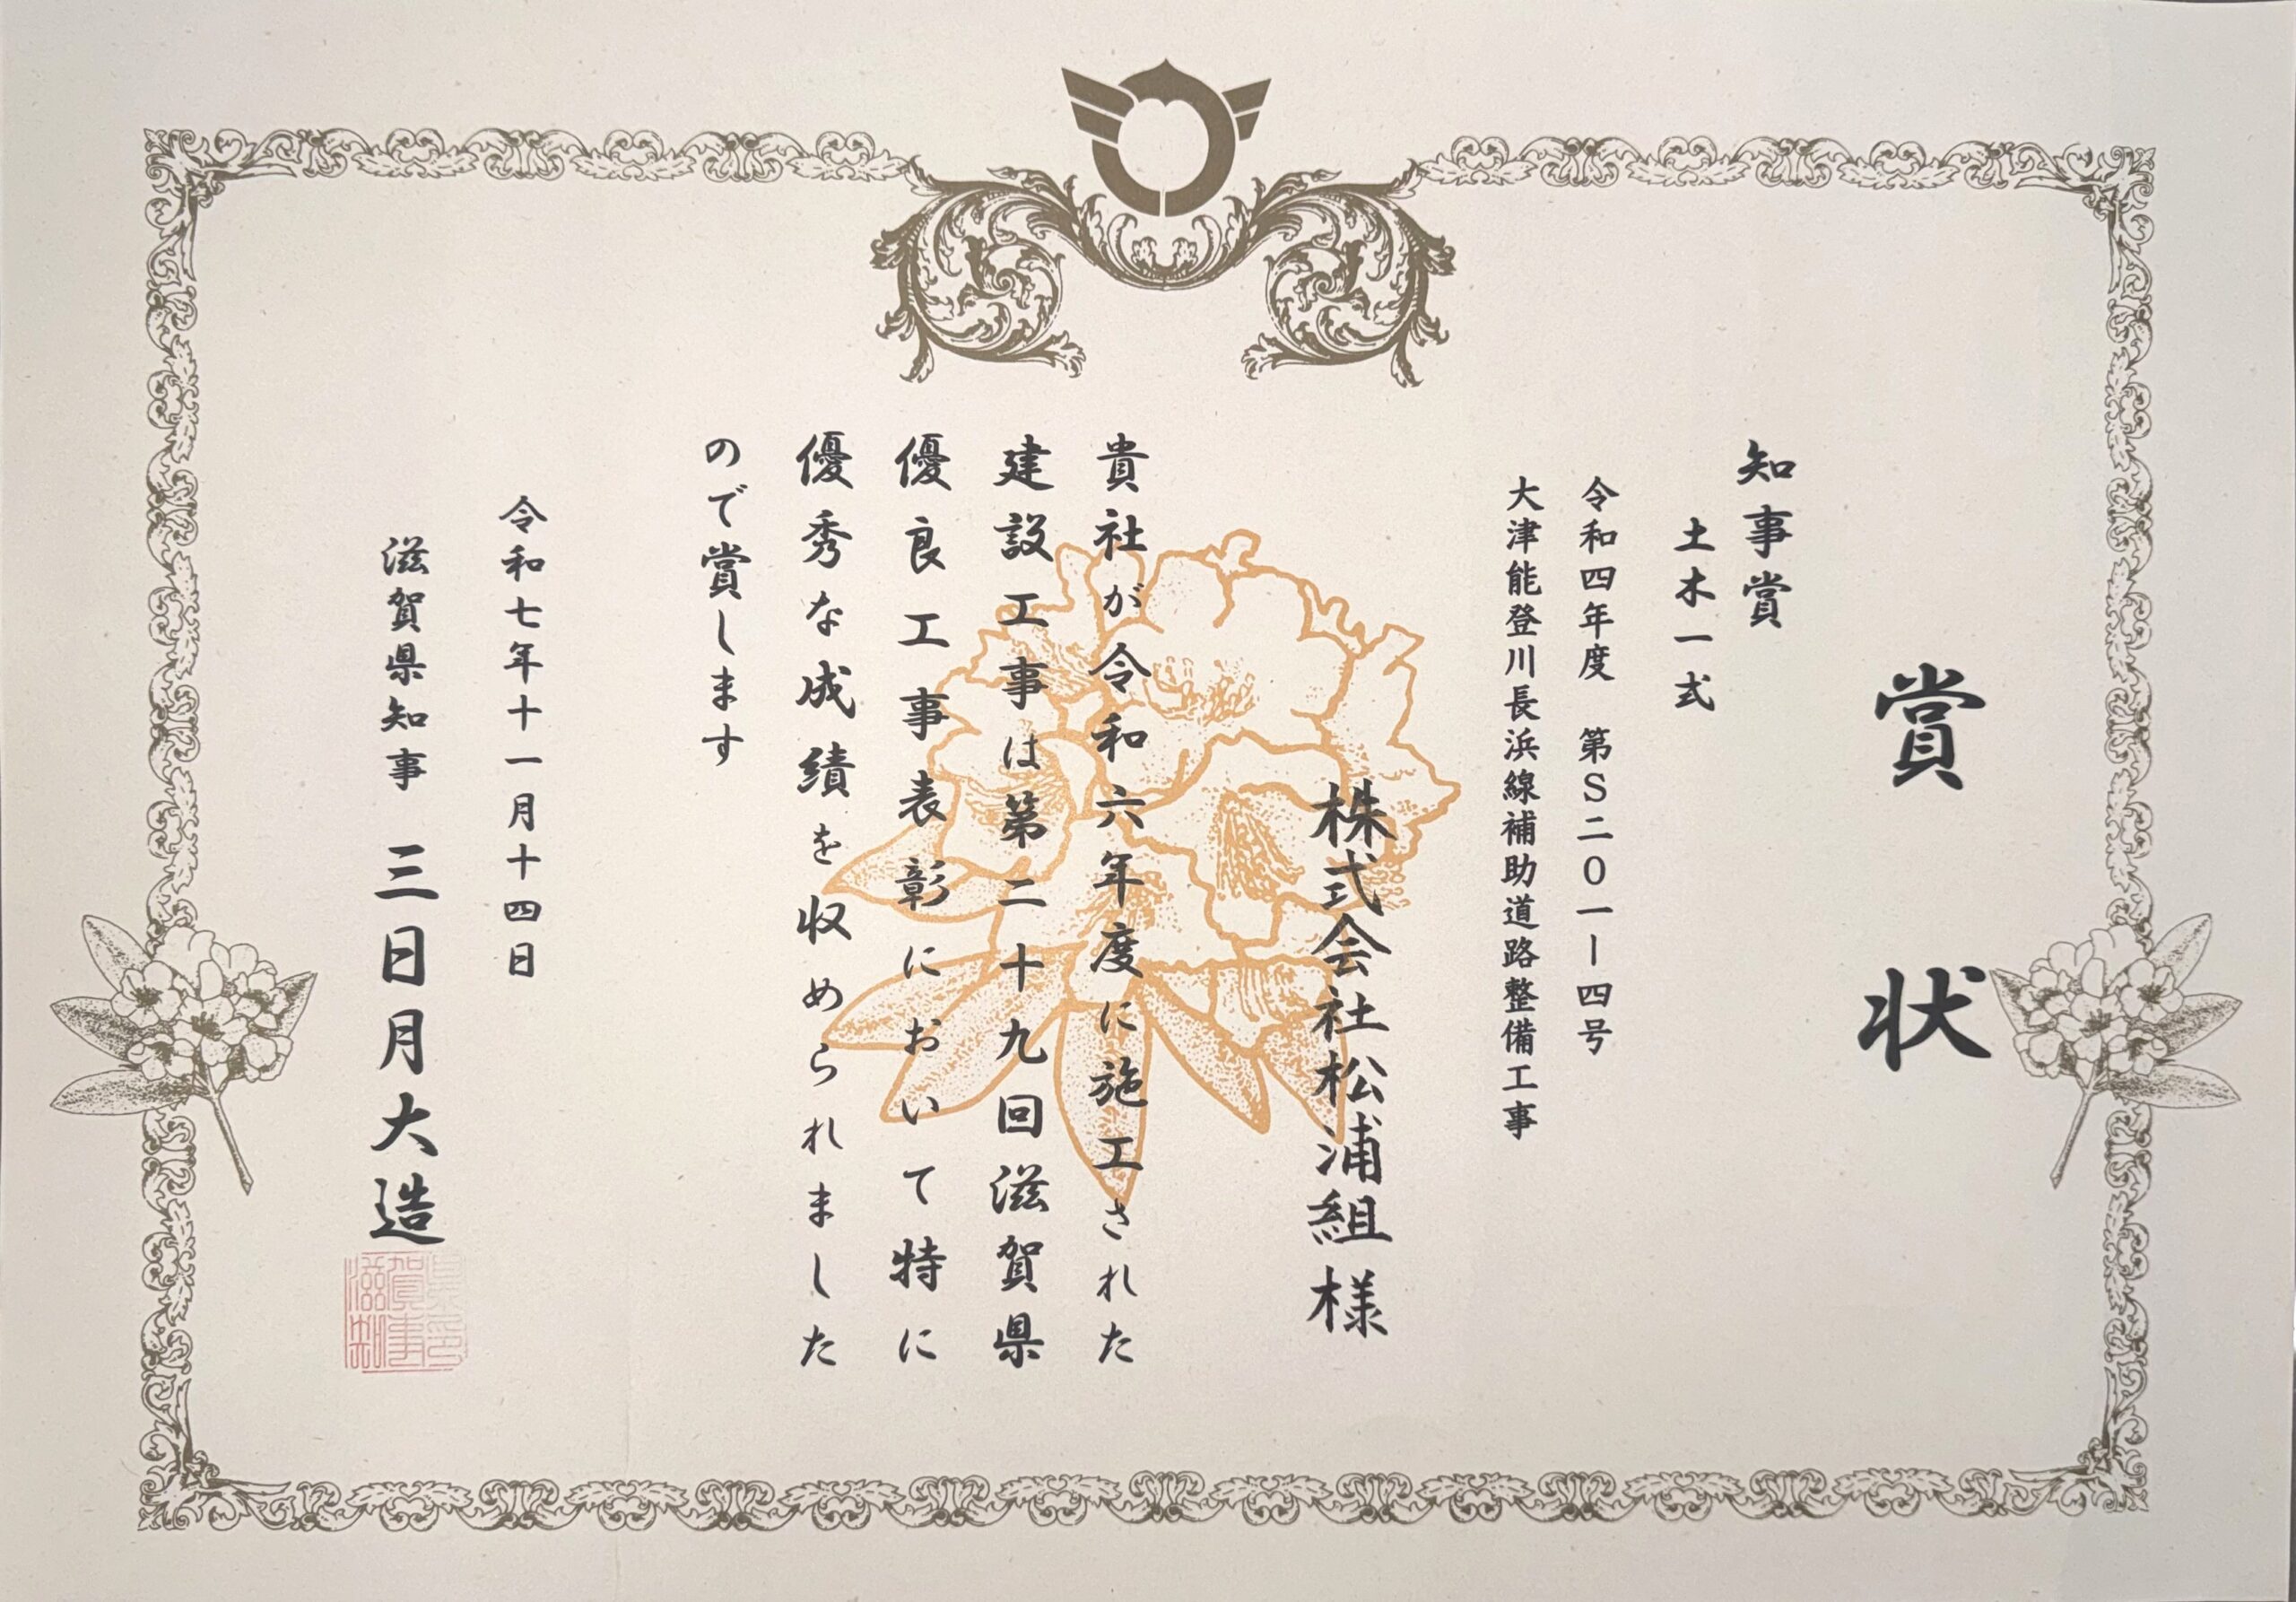 賞状
知事賞
土木一式
令和四年度　第S二0一ー四号
大津能登川長浜線補助道路整備工事
株式会社松浦組様
貴社が令和六年度に施工された
建設工事は第二十九回滋賀県
優良工事表彰において特に
優秀な成績を収められました
ので賞します
令和七年十一月十四日
滋賀県知事　三日月大造
滋賀県知事印